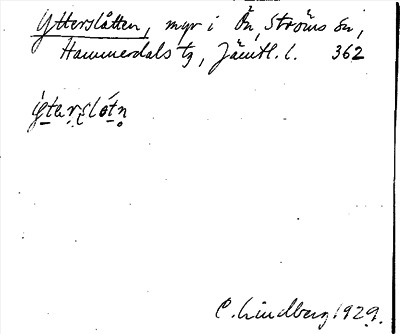 Ytterslåtten, myr i Ön, Ströms sn,
Hammerdals tg, Jämtl. l. 362
C. Lindberg 1929.